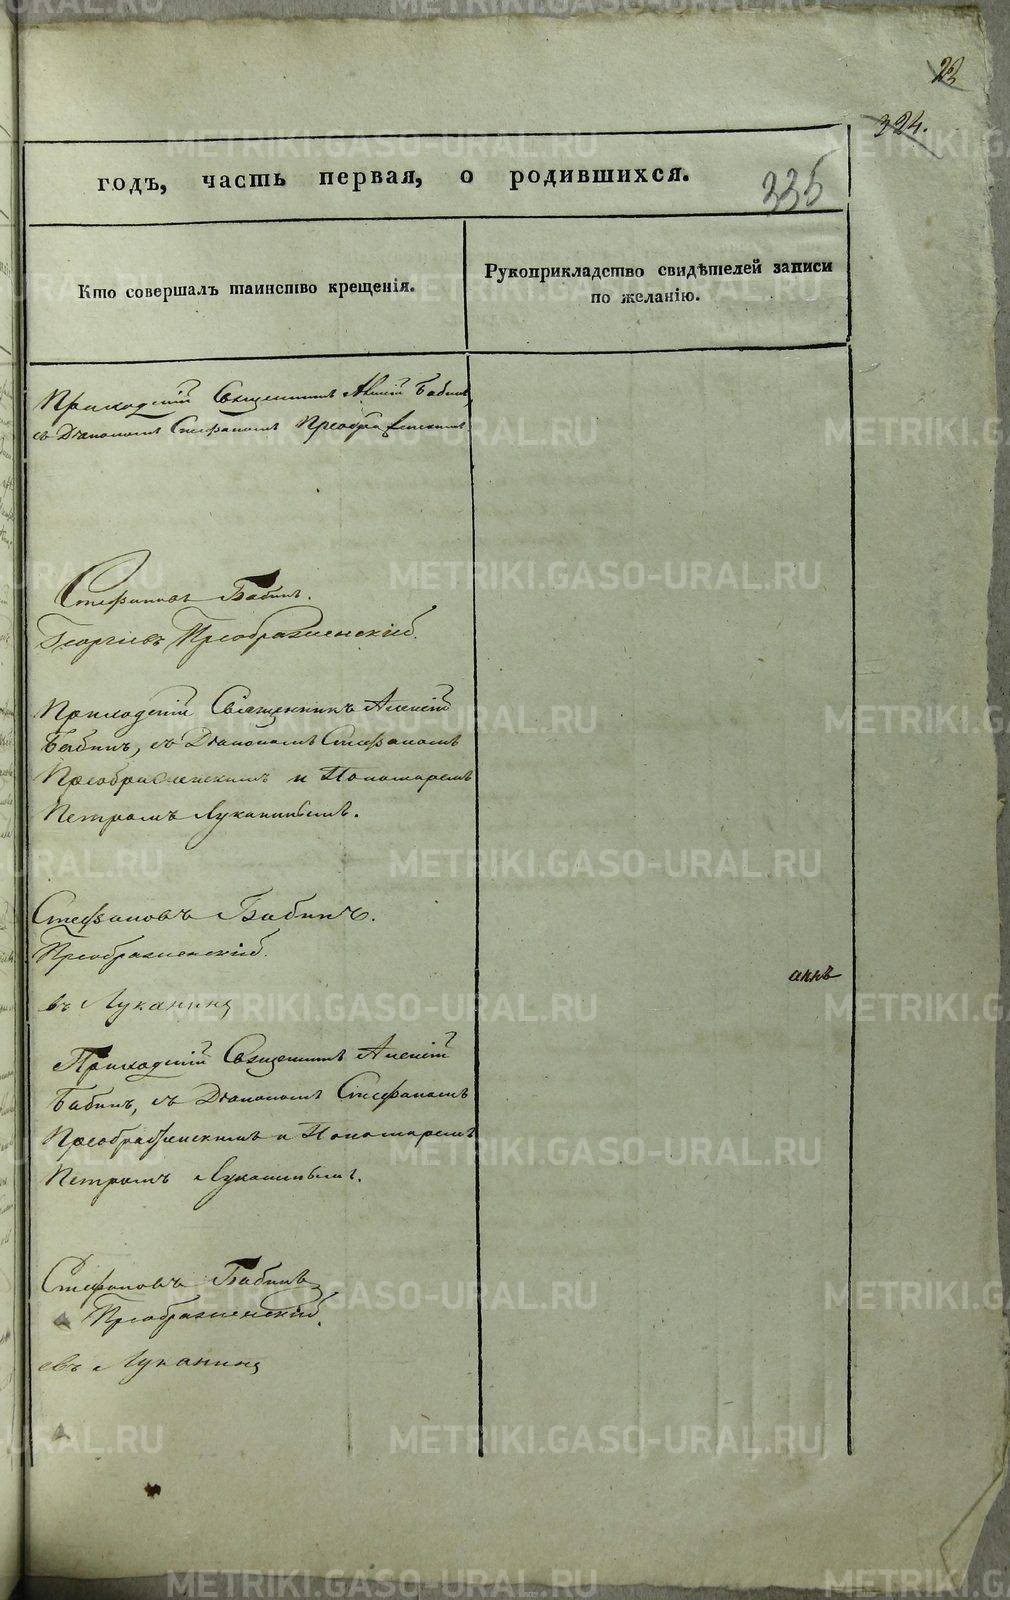 23
324.
335
годъ, часть первая, о родившихся.
Кто совершалъ таинство крещенія.
Рукоприкладство свидѣтелей записи
по желанію.
Приходскій Священникъ Алексій Бабинъ,
съ Діакономъ Стефаномъ Преображенскимъ
Стефановъ Бабинъ.
Георгіевъ Преображенскій.
Приходскій Священникъ Алексій
Бабинъ, съ Діакономъ Стефаномъ
Преображенскимъ и Пономаремъ
Петромъ Луканинымъ.
Стефановъ Бабинъ.
Преображенскій.
въ Луканинъ
Приходскій Священникъ Алексій
Бабинъ, съ Діакономъ Стефаномъ
Преображенскимъ и Пономаремъ
Петромъ Луканинымъ.
Стефановъ Бабинъ
Преображенскій.
евъ Луканинъ
METRIKI.GASO-URAL.RU